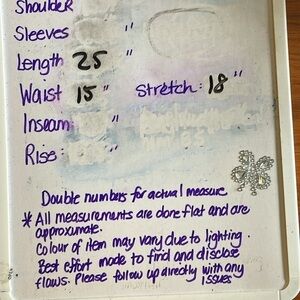 Shoulder
Sleeves "
Length 25 "
Waist 15 " Stretch: 18 "
Inseam: "
Rise: "
Double numbers for actual measure
* All measurements are done flat and are
approximate.
Colour of item may vary due to lighting.
Best effort made to find and disclose
flaws. Please follow up directly with any
issues